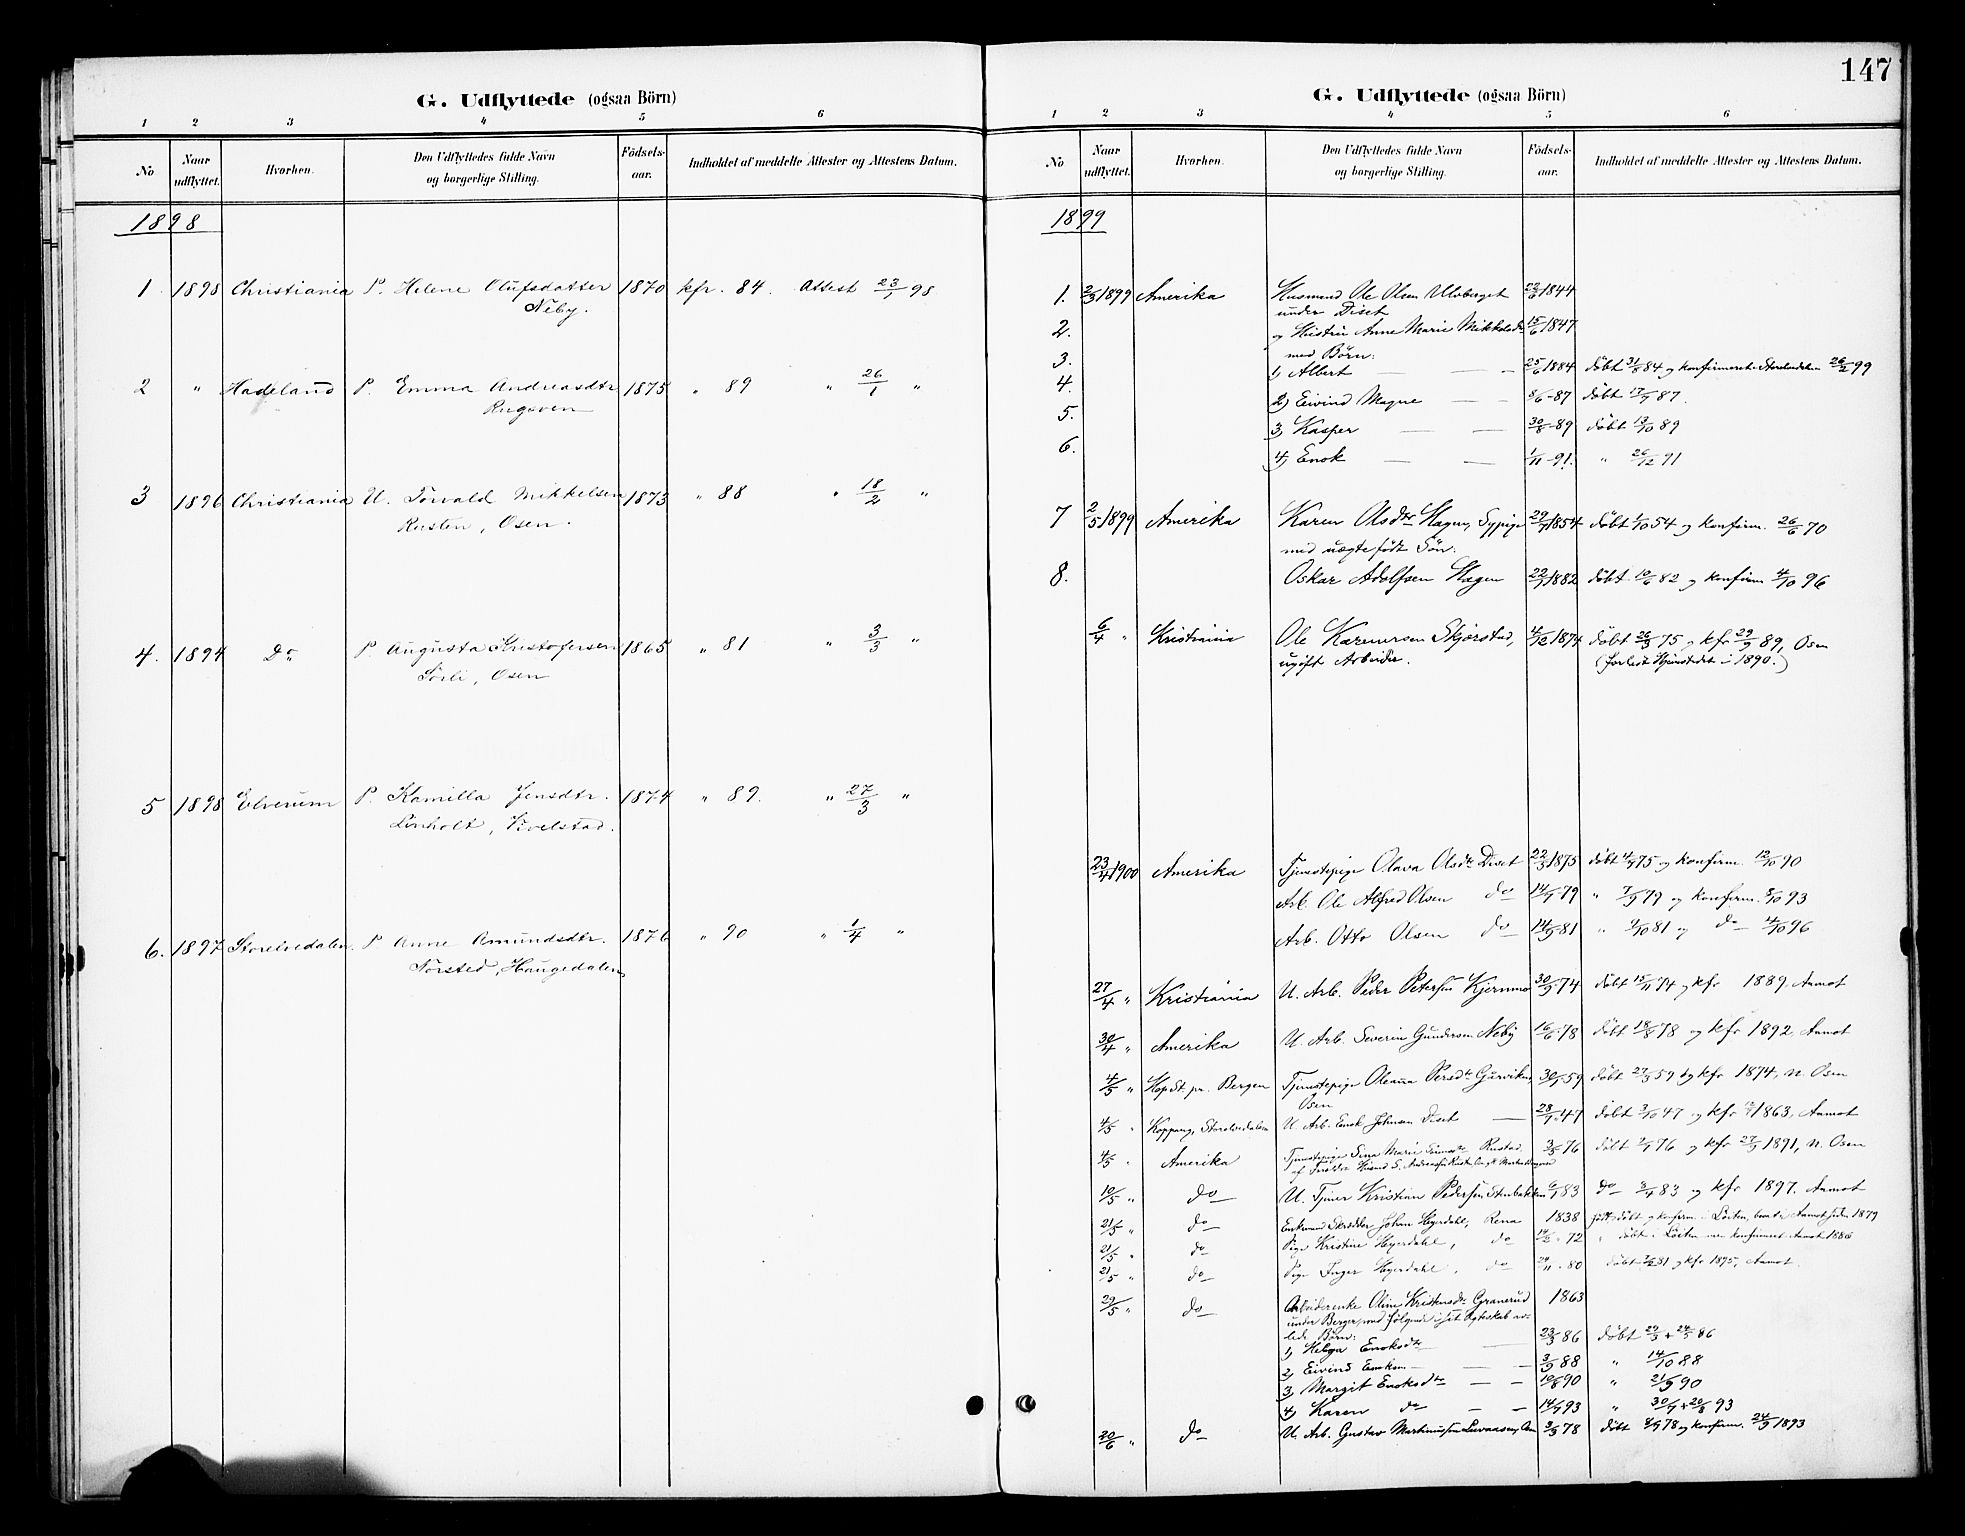 G. Udflyttede (ogsaa Börn)
1 2 3 4 5 6
No Naar udflyttet. Hvorhen. Den Udflyttedes fulde Navn og borgerlige Stilling. Födsels-aar. Indholdet af meddelte Attester og Attestens Datum.
1898
1 1898 Christiania P. Helene Olufsdatter 1870 kfr. 84. Attest 23/1 98
Neby.
2 " Hadeland P. Emma Andreasdtr 1875 " 89 " 26/1 "
Rugsven
3 1896 Christiania U. Torvald Mikkelsen 1873 " 88 " 18/2 "
Rusten, Osen.
4. 1894 Do P. Augusta Kristofersen 1865 " 81 " 3/3 "
Sörli, Osen
5 1898 Elverum P. Kamilla Jensdtr. 1874 " 89. " 27/3 "
Linholt, Kvelstad.
6. 1897 Storelvedalen P Anne Amundsdtr. 1876 " 90 " 1/4 "
Norsted, Haugedalen
147
G. Udflyttede (ogsaa Börn)
1 2 3 4 5 6
No Naar udflyttet. Hvorhen. Den Udflyttedes fulde Navn og borgerlige Stilling. Födsels-aar. Indholdet af meddelte Attester og Attestens Datum.
1899
1. 2/3 1899 Amerika Husmand Ole Olsen Ulvberget 22/6 1844
under Diset
2. og Hustru Anne Marie Mikkelsdr 15/6 1847
med Börn:
3. 1) Albert — — — 25/6 1884 döbt 31/8 84 og konfirmeret i Storelvedalen 26/2 99
4. 2) Eivind Magne — — 8/6 -87 döbt 17/7 87.
5. 3) Kasper — — 30/8 -89 döbt 13/10 89
6. 4) Enok — — 1/11 -91. " 26/12 91
7 2/5 1899 Amerika Karen Olsdtr Hagen, Sypige 29/7 1854 döbt 1/10 54 og konfirm. 26/6 70
med uægte födt Sön:
8. Oskar Adolfsen Hagen 22/1 1882 döbt 10/6 82 og konfirm 4/10 96
6/4 " Kristiania Ole Karenusen Skjörstad, 4/12 1874 döbt 26/3 75 og kfr 29/9 89, Osen
ugift Arbeider. (forlod Stjernstedet i 1890.)
23/4 1900 Amerika Tjenestepige Olava Olsdtr Diset 22/3 1875 döbt 4/7 75 og konfirm. 12/10 90
Arb. Ole Alfred Olsen do 14/7 79 " 7/9 79 og konfirm. 8/10 93
Arb. Otto Olsen do 14/5 81 " 2/10 81 og do 4/10 96
27/4 " Kristiania U. Arb. Peder Petersen Kjernmo 30/9 74 döbt 15/11 74 og kfr 1889. Aamot
30/4 " Amerika U. Arb. Severin Gundersen Neby 16/6 78 döbt 18/8 78 og kfr 1892, Aamot
4/5 " Hop St. pr. Bergen Tjenestepige Oleana Persdtr Gurviken, 30/1 59 döbt 27/3 59 og kfr 1874, N. Osen
Osen
4/5 " Koppang, Storelvedalen U. Arb. Enok Johnsen Diset — 28/7 47 döbt 3/10 47 og kfr 1863, Aamot
4/5 " Amerika Tjenestepige Sina Marie Rustad 3/5 76 döbt 2/7 76 og kfr 27/9 1891, N. Osen
10/5 " do U. Tjener Kristian Pedersen Stubakken 6/1 83 do 3/4 83 og kfr 1897. Aamot
21/5 " do Enkemand Skredder Johan Heyerdahl, Rena 1838 född, döbt og konfirm. i Löiten, boet i Aamot siden 1879
21/5 " do Pige Kristine Heyerdahl, do 14/5 72 " döbt i Löiten men konfirmeret Aamot 1886
21/5 " do Pige Inger Heyerdahl, do 29/11 80 döbt 7/2 81 og kfr 1895, Aamot.
29/5 " do Arbeiderenke Oline Kristensdtr Granerud 1863
under Berger, med fölgende i sit Ægteskab av-
lede Börn:
1) Helga Enoksdtr — 23/3 86 döbt 29/3 + 24/5 86
2) Eivind Enoksen — — — 3/9 88 " 14/10 88
3) Margit Enoksdtr — — 10/8 90 " 21/9 90
4) Karen do — — 14/7 93 " 30/7 + 20/8 93
20/6 " do U. Arb. Gustav Martinusen Løvaasen, Osen 3/5 78 döbt 8/7 78 og konfirm. 24/9 1893